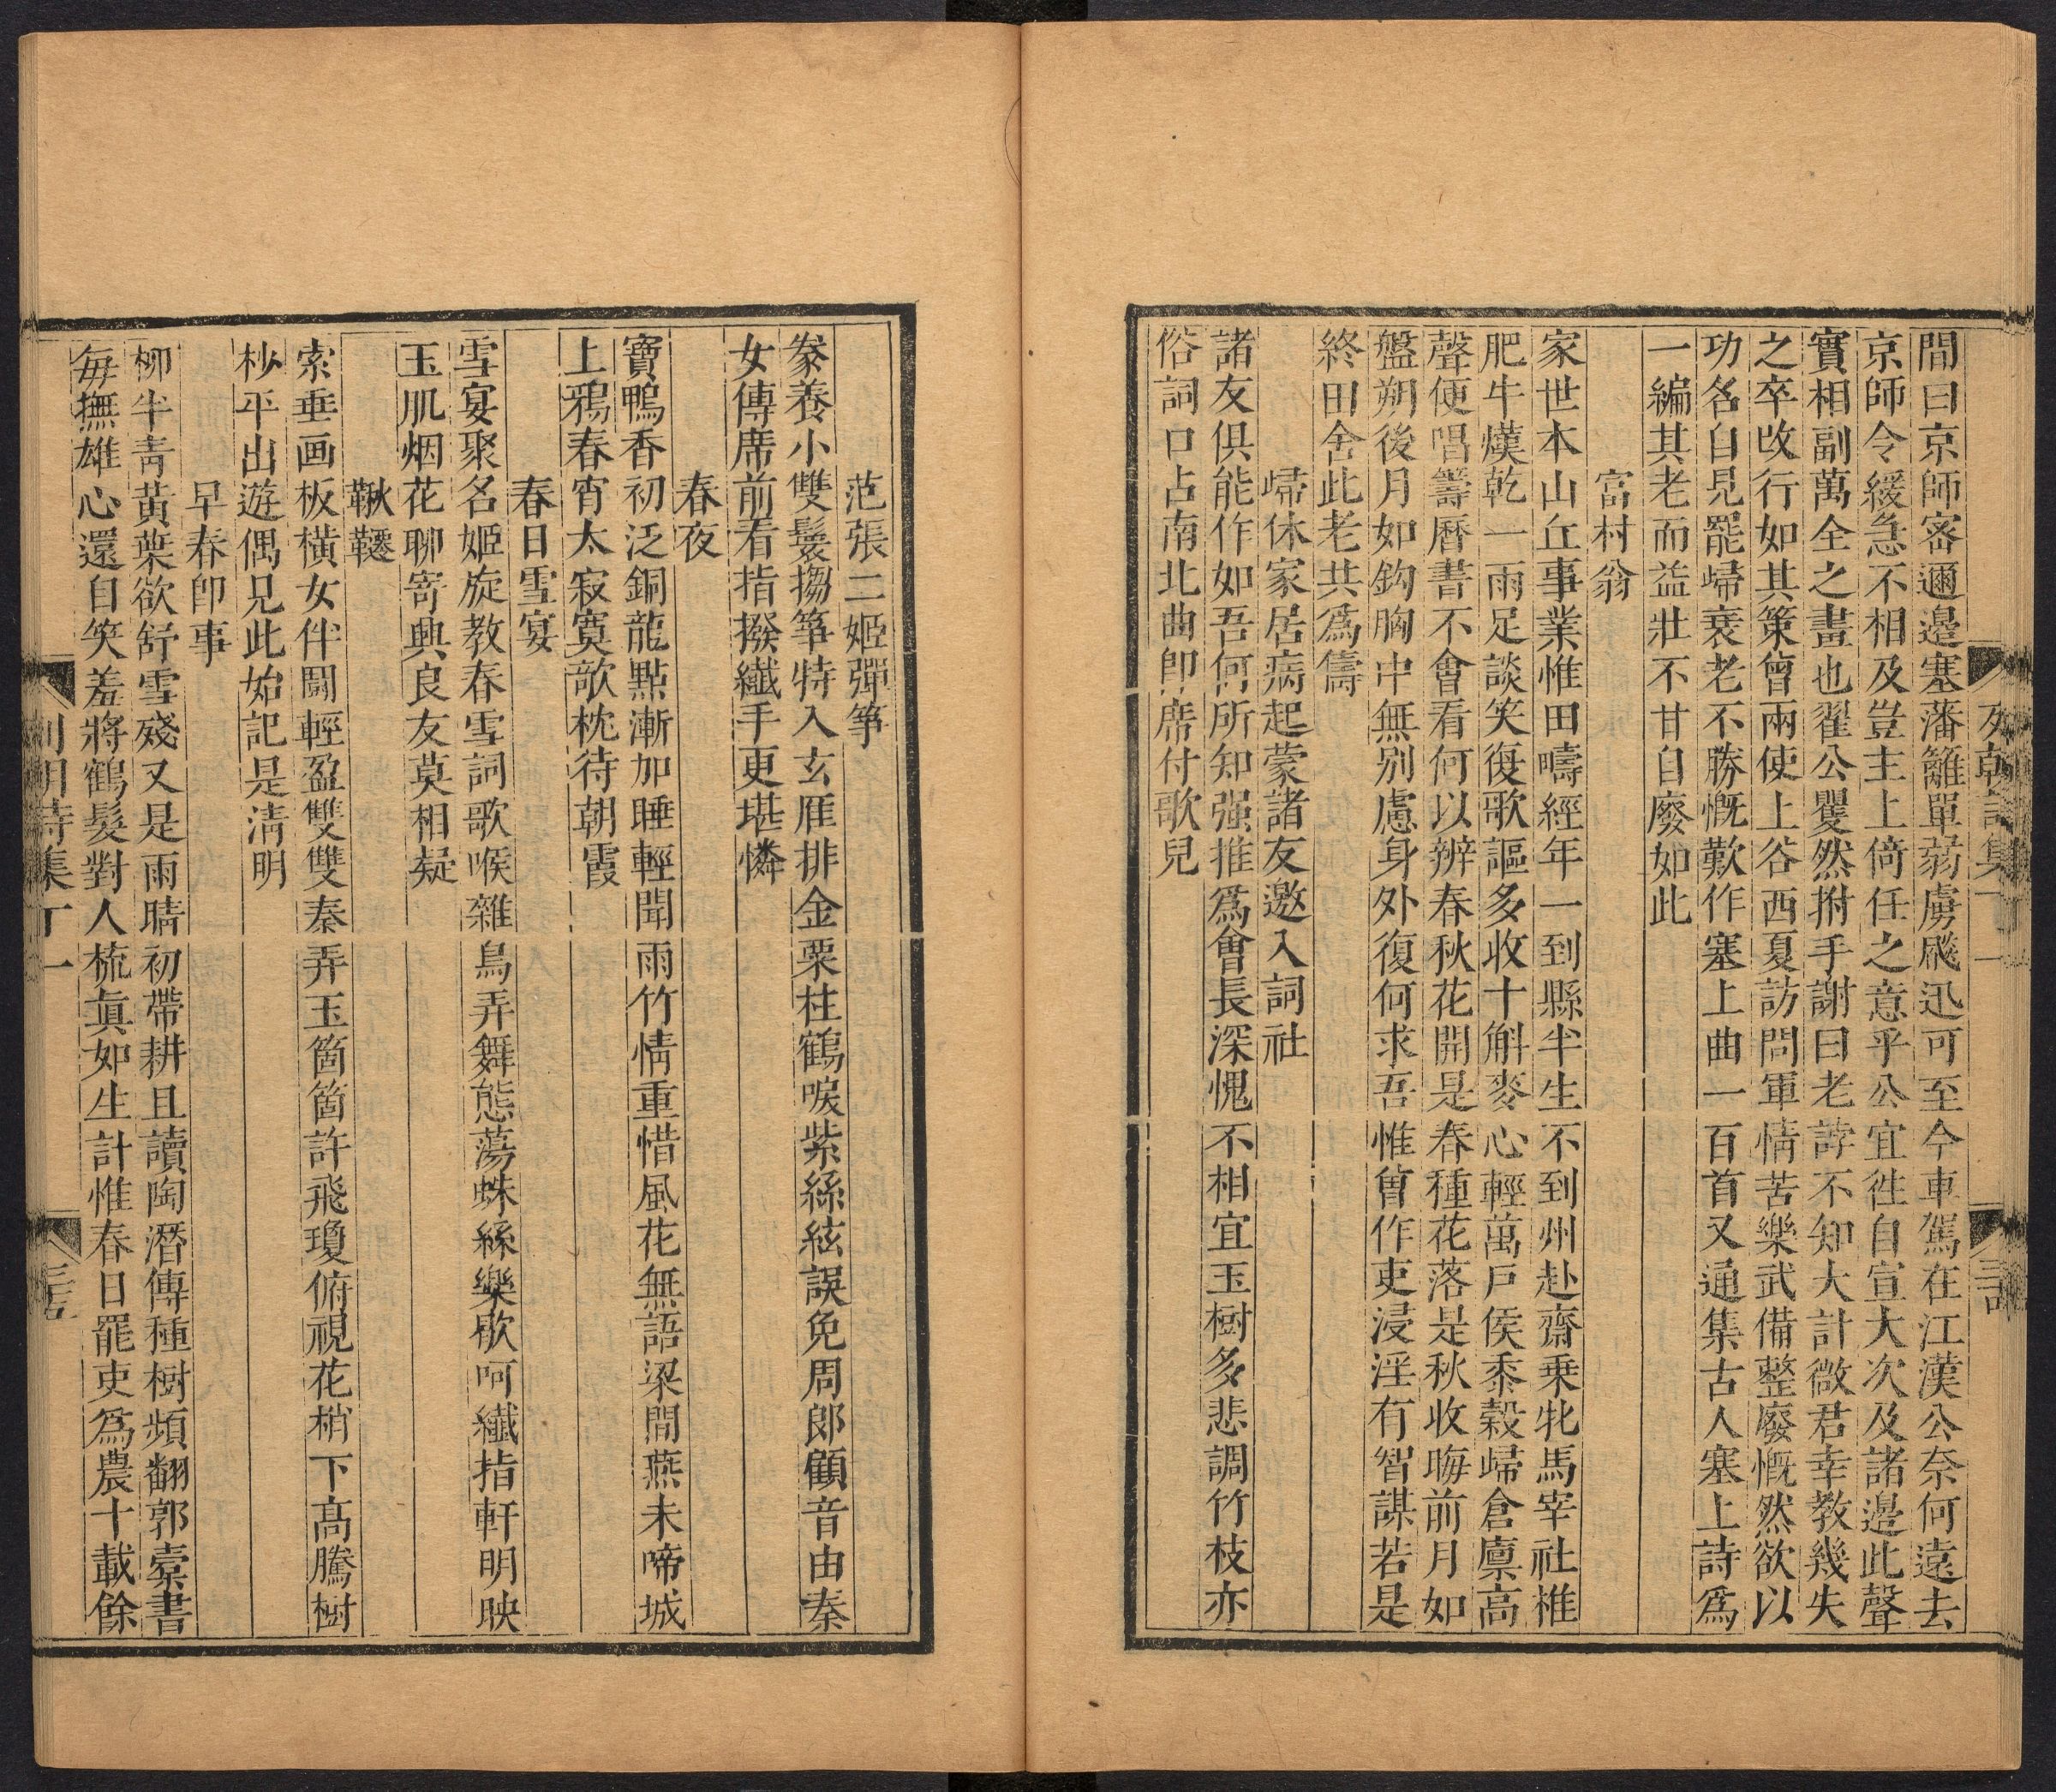 列朝詩集丁一
間曰京師密邇邊塞藩籬單弱虜飈迅可至今車駕在江漢公奈何遠去
京師令緩急不相及豈主上倚任之意乎公宜徃自宣大次及諸邊此聲
實相副萬全之畫也翟公矍然拊手謝曰老誖不知大計微君幸教幾失
之卒改行如其策會兩使上谷西夏訪問軍情苦樂武備整廢慨然欲以
功名自見罷歸衰老不勝慨歎作塞上曲一百首又通集古人塞上詩爲
一編其老而益壯不甘自廢如此
富村翁
家世本山丘事業惟田疇經年一到縣半生不到州赴齋乗牝馬宰社椎
肥牛熯乾一雨足談笑復歌謳多收十斛麥心輕萬戸侯黍穀歸倉廪高
聲便唱籌曆書不會看何以辨春秋花開是春種花落是秋收晦前月如
盤朔後月如鈎胸中無别慮身外復何求吾惟曾作吏浸淫有智謀若是
終田舍此老共爲儔
歸休家居病起蒙諸友邀入詞社
諸友俱能作如吾何所知强推爲會長深愧不相宜玉樹多悲調竹枝亦
俗詞口占南北曲卽席付歌兒
范張二姬彈箏
豢養小雙鬟搊箏特入玄雁排金粟柱鶴唳紫絲絃誤免周郎顧音由秦
女傳席前看指撥纖手更堪憐
春夜
寶鴨香初泛銅龍點漸加睡輕聞雨竹情重惜風花無語梁間燕未啼城
上鴉春宵太寂寞欹枕待朝霞
春日雪宴
雪宴聚名姬旋教春雪詞歌喉雜鳥弄舞態蕩蛛絲樂歇呵纖指軒明映
玉肌烟花聊寄興良友莫相疑
鞦韆
索垂画板橫女伴鬭輕盈雙雙秦弄玉箇箇許飛瓊俯視花梢下高騰樹
杪平出遊偶見此始記是淸明
早春卽事
柳半靑黃葉欲舒雪殘又是雨晴初帶耕且讀陶潛傳種樹頻翻郭橐書
每撫雄心還自笑羞將鶴髮對人梳眞如生計惟春日罷吏爲農十載餘
列朝詩集丁一